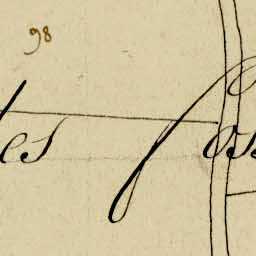 98
es foss